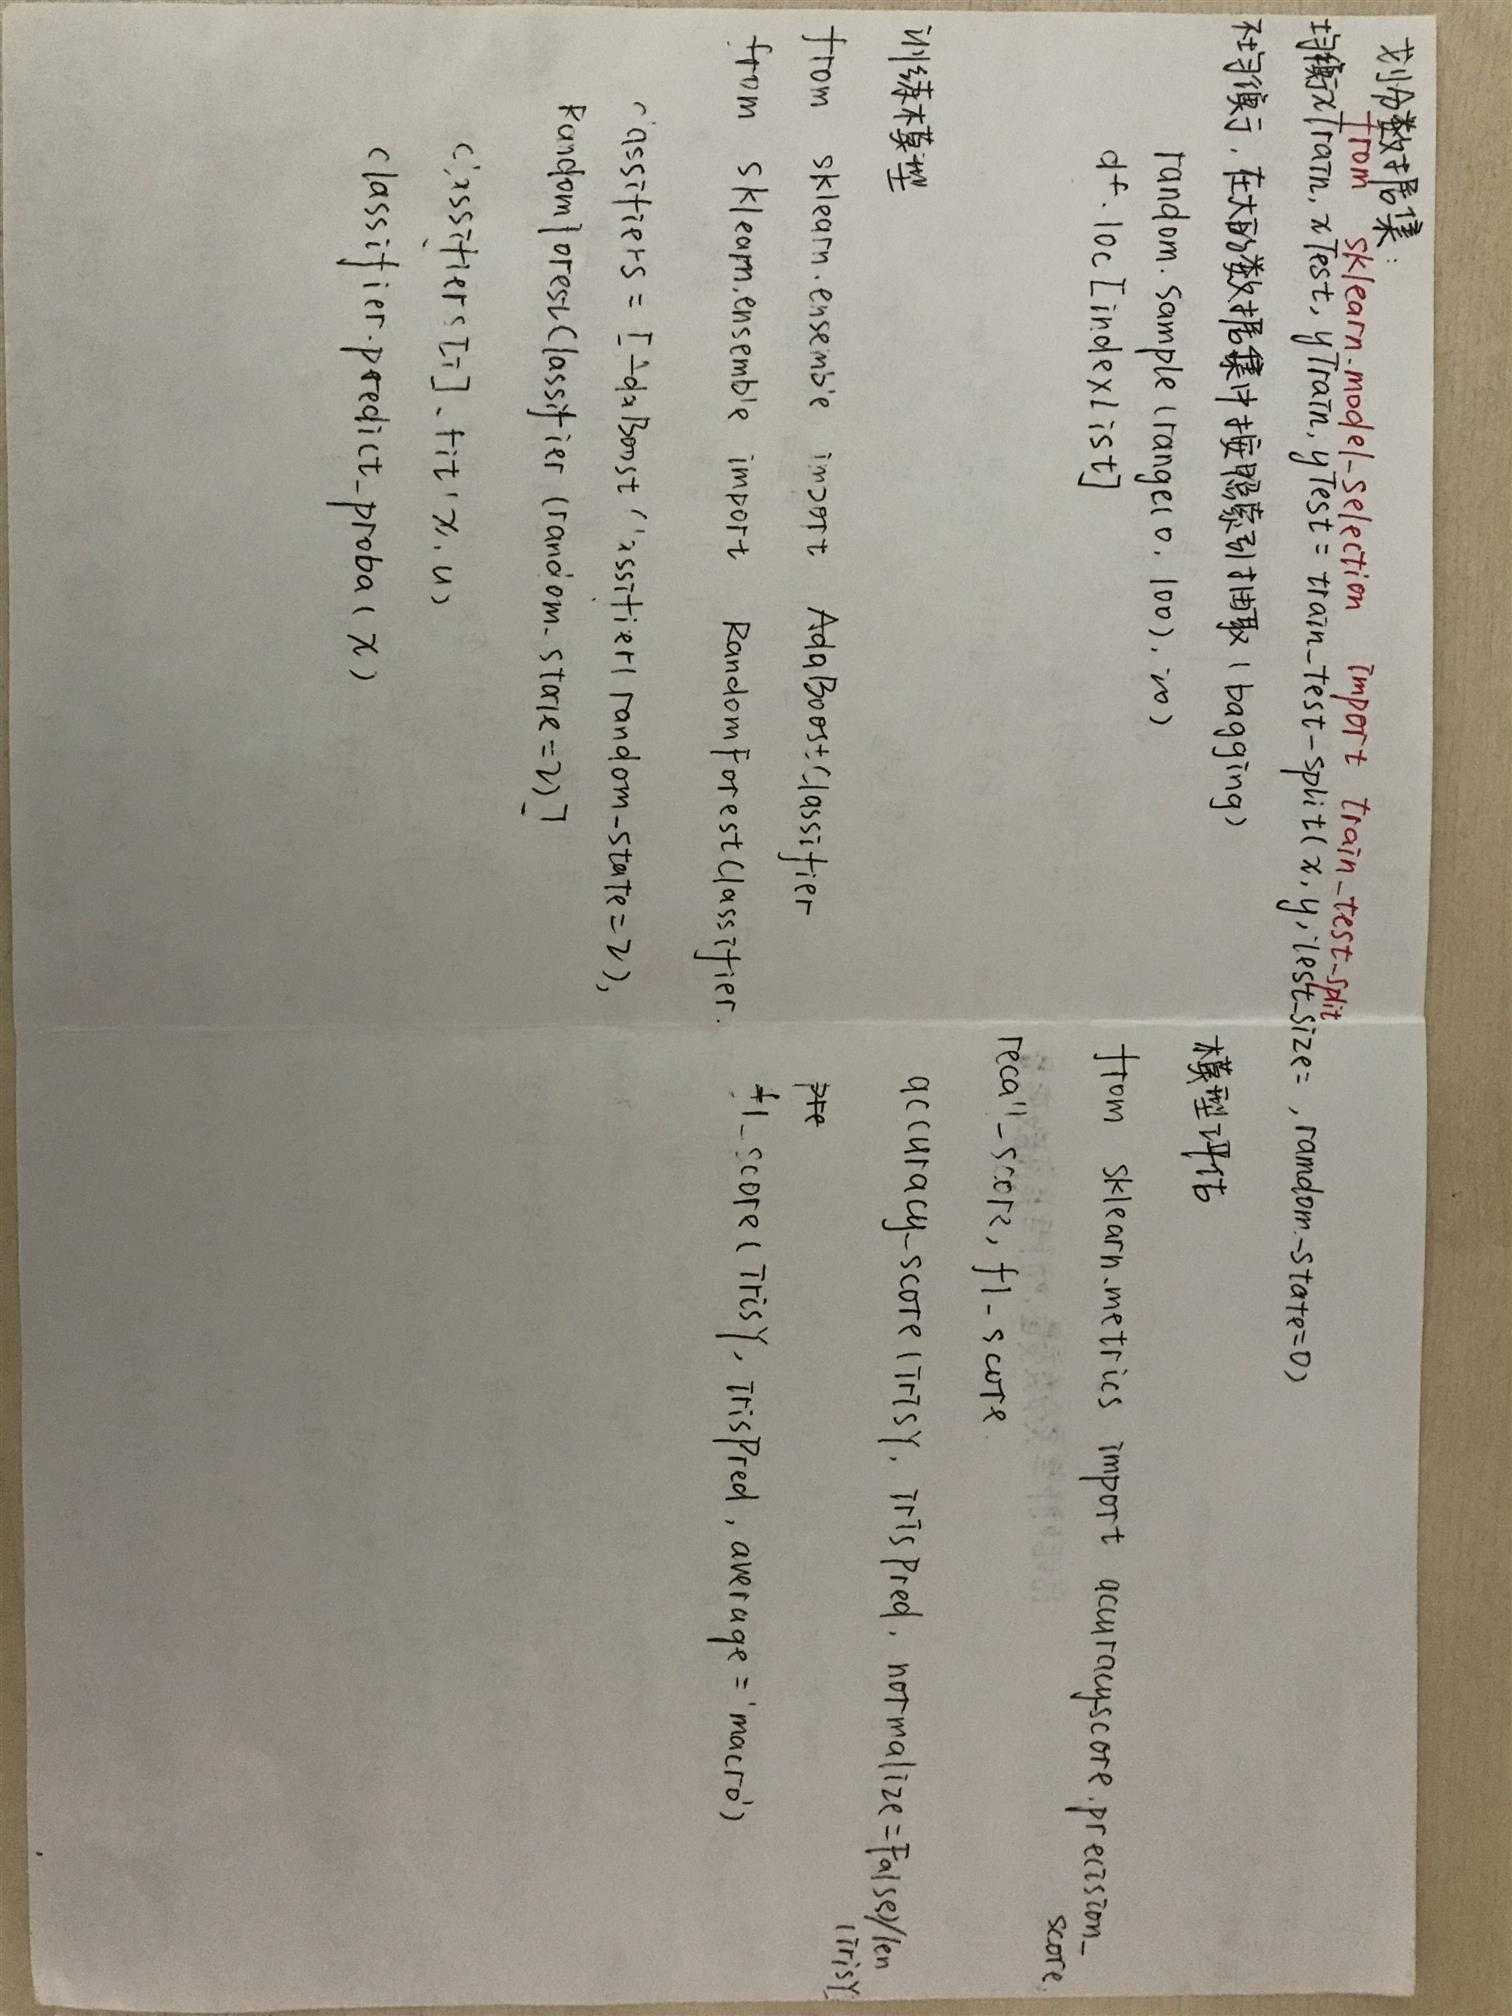 划分数据集：
from sklearn.model_selection import train_test_split
均衡 xTrain, xTest, yTrain, yTest = train_test_split(x, y, test_size= , random_state=0)
不均衡, 在大的数据集中按照索引抽取 (bagging)
random.sample (range(0, 100), 20)
df.loc[indexlist]
训练模型
from sklearn.ensemble import AdaBoostClassifier
from sklearn.ensemble import RandomForestClassifier.
classifiers = [AdaBoostClassifier(random_state=2),
RandomForestClassifier (random_state=2)]
classifiers[i].fit(x, y)
classifier.predict_proba(x)
模型评估
from sklearn.metrics import accuracyscore, precision_
score,
recall_score, f1_score
accuracy_score(irisY, irisPred, normalize=False)/len
(irisY)
pre
f1_score(irisY, irisPred, average='macro')